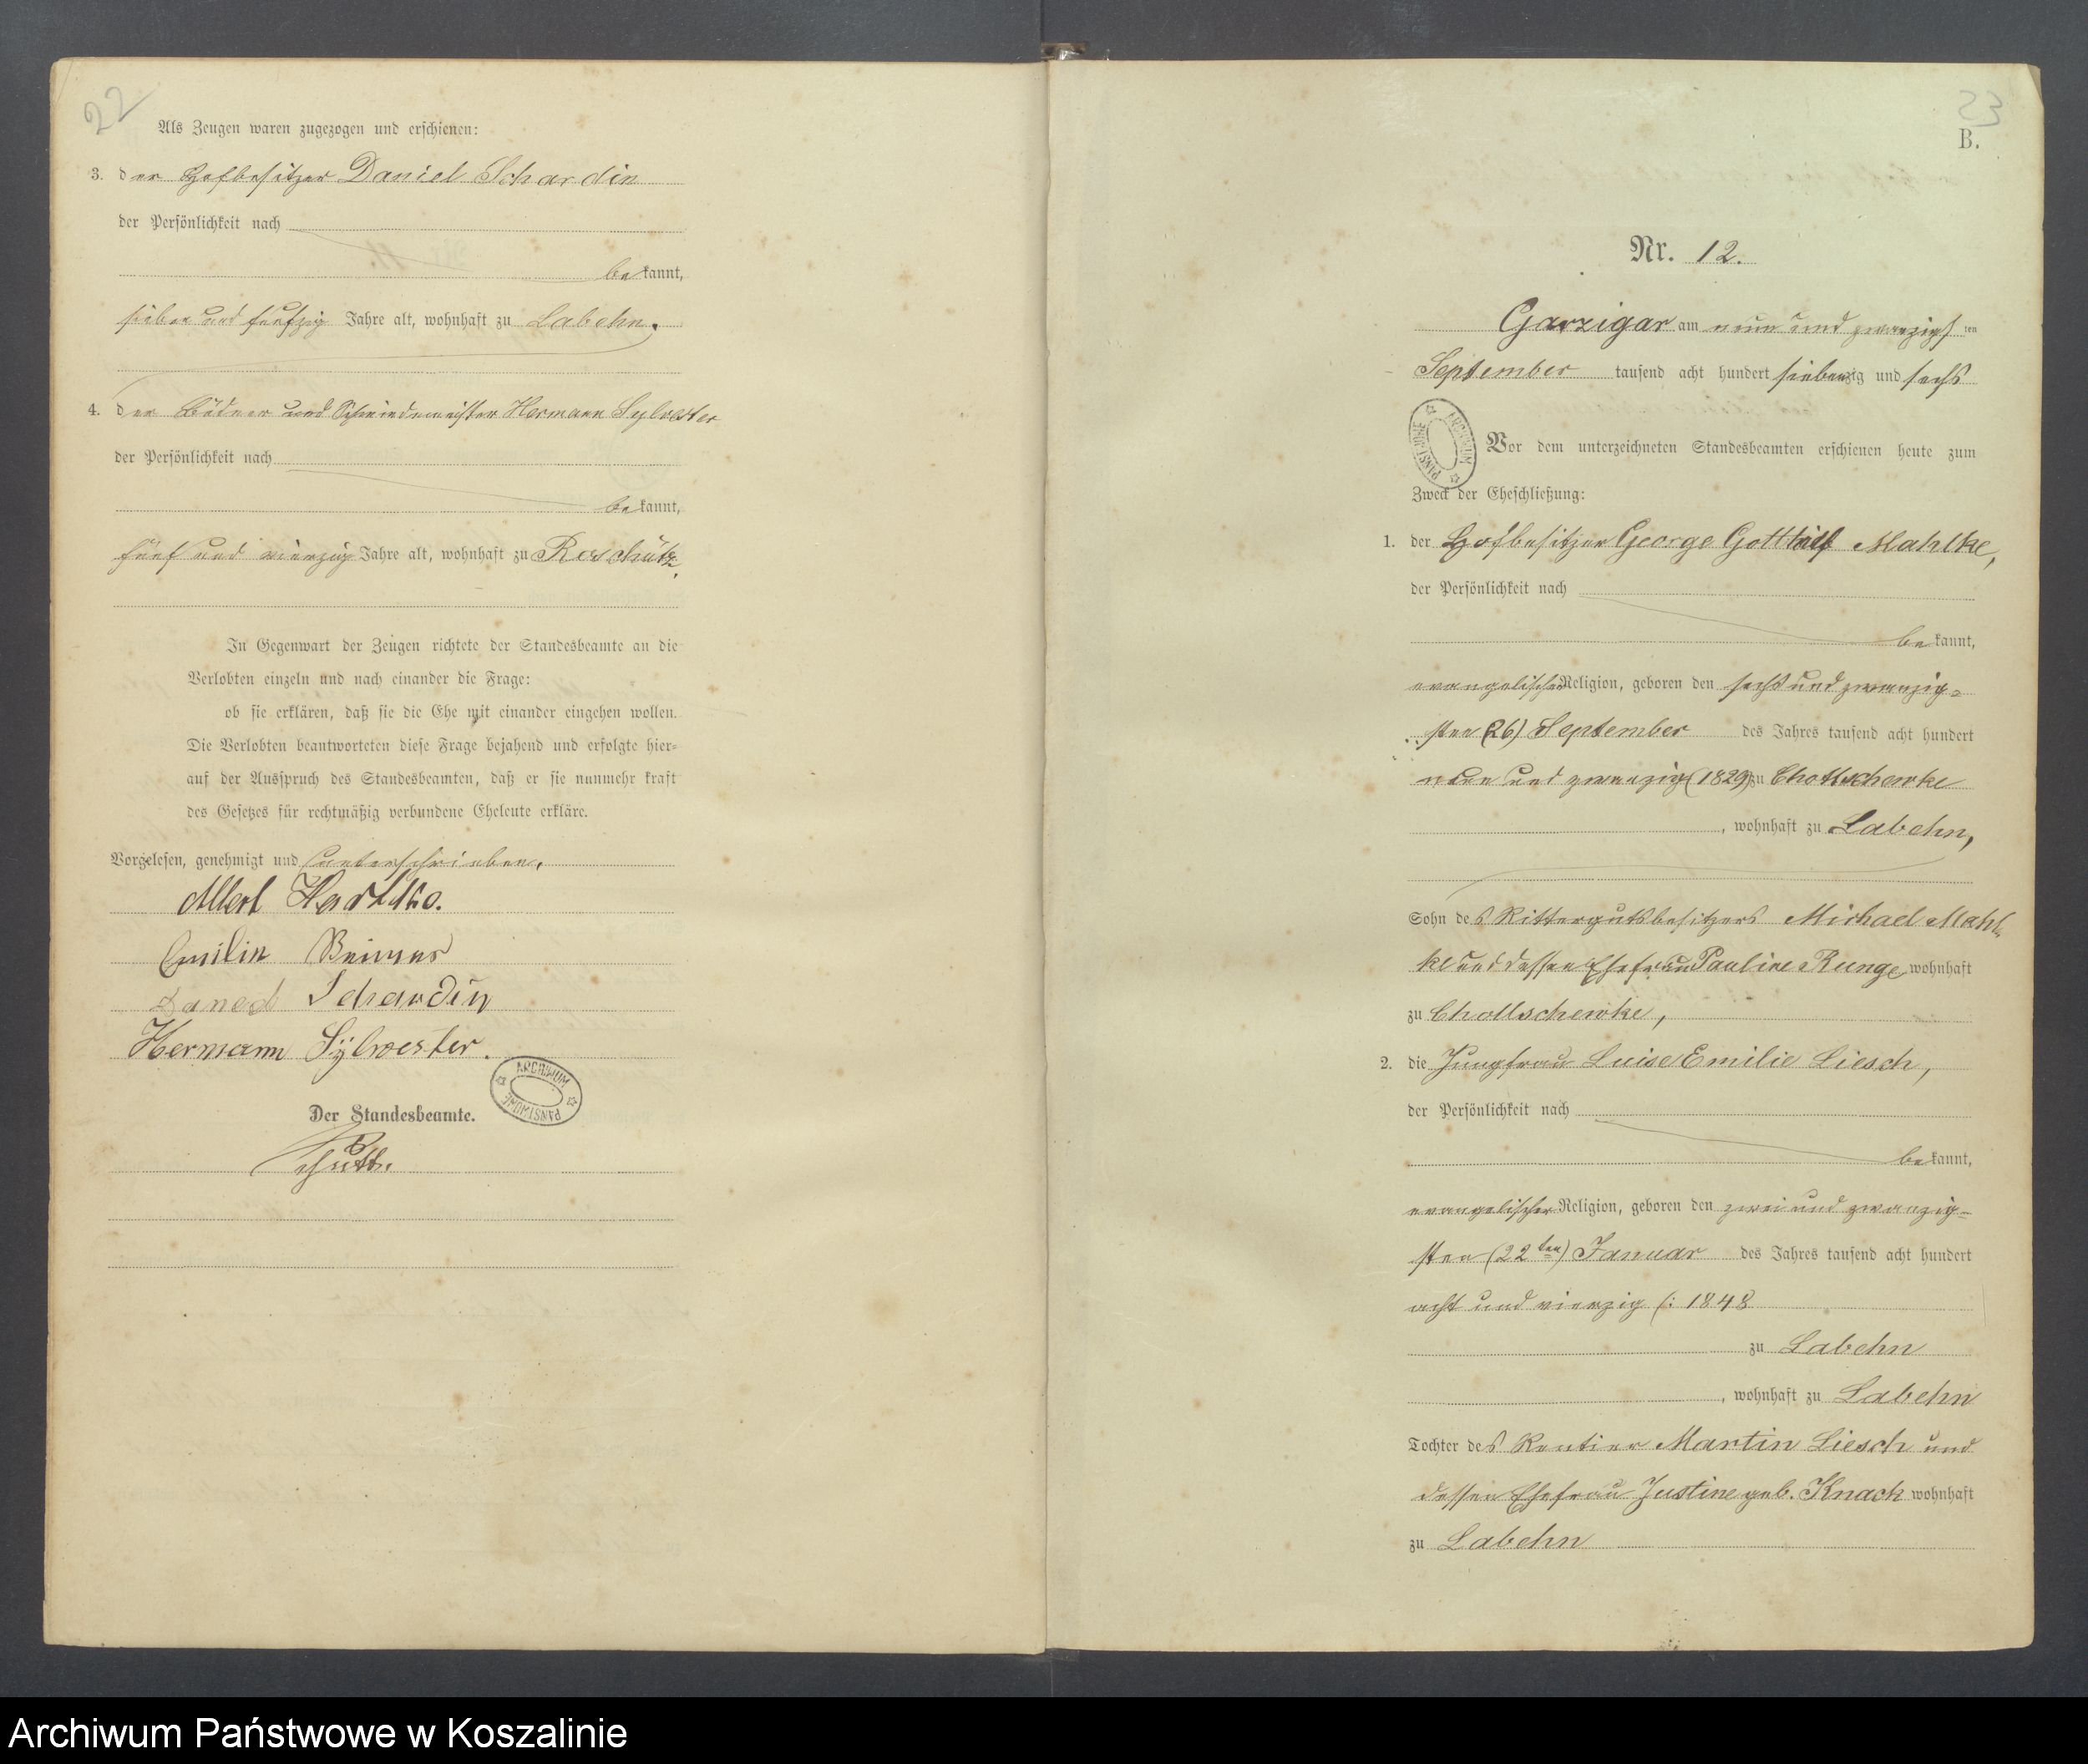 22
Als Zeugen waren zugezogen und erschienen:
3. der Hofbesitzer Daniel Schardin
der Persönlichkeit nach
bekannt,
sieben und fünfzig Jahre alt, wohnhaft zu Labehn.
4. der Büdner und Schmiedemeister Hermann Sylvester
der Persönlichkeit nach
bekannt,
fünf und vierzig Jahre alt, wohnhaft zu Roschütz.
In Gegenwart der Zeugen richtete der Standesbeamte an die
Verlobten einzeln und nach einander die Frage:
ob sie erklären, daß sie die Ehe mit einander eingehen wollen.
Die Verlobten beantworteten diese Frage bejahend und erfolgte hier-
auf der Ausspruch des Standesbeamten, daß er sie nunmehr kraft
des Gesetzes für rechtmäßig verbundene Eheleute erkläre.
Vorgelesen, genehmigt und unterschrieben.
Albert
Emilie
Daniel Schardin
Hermann Sylvester.
ARCHIWUM PAŃSTWOWE
Der Standesbeamte.
23
B.
Nr. 12.
Garzigar am neun und zwanzigsten
September tausend acht hundert siebenzig und sechs
ARCHIWUM PAŃSTWOWE
Vor dem unterzeichneten Standesbeamten erschienen heute zum
Zweck der Eheschließung:
1. der Hofbesitzer George Gotthilf Mahlke,
der Persönlichkeit nach
bekannt,
evangelischer Religion, geboren den sechs und zwanzig-
sten (26) September des Jahres tausend acht hundert
neun und zwanzig (1829) zu Chottschewke
, wohnhaft zu Labehn,
Sohn des Rittergutsbesitzers Michael Mahl-
ke und dessen Ehefrau Pauline Runge wohnhaft
zu Chottschewke,
2. die Jungfrau Luise Emilie Liesch,
der Persönlichkeit nach
bekannt,
evangelischer Religion, geboren den zwei und zwanzig-
sten (22ten) Januar des Jahres tausend acht hundert
acht und vierzig (: 1848
zu Labehn
, wohnhaft zu Labehn
Tochter des Rentier Martin Liesch und
dessen Ehefrau Justine geb. Knack wohnhaft
zu Labehn
Archiwum Państwowe w Koszalinie